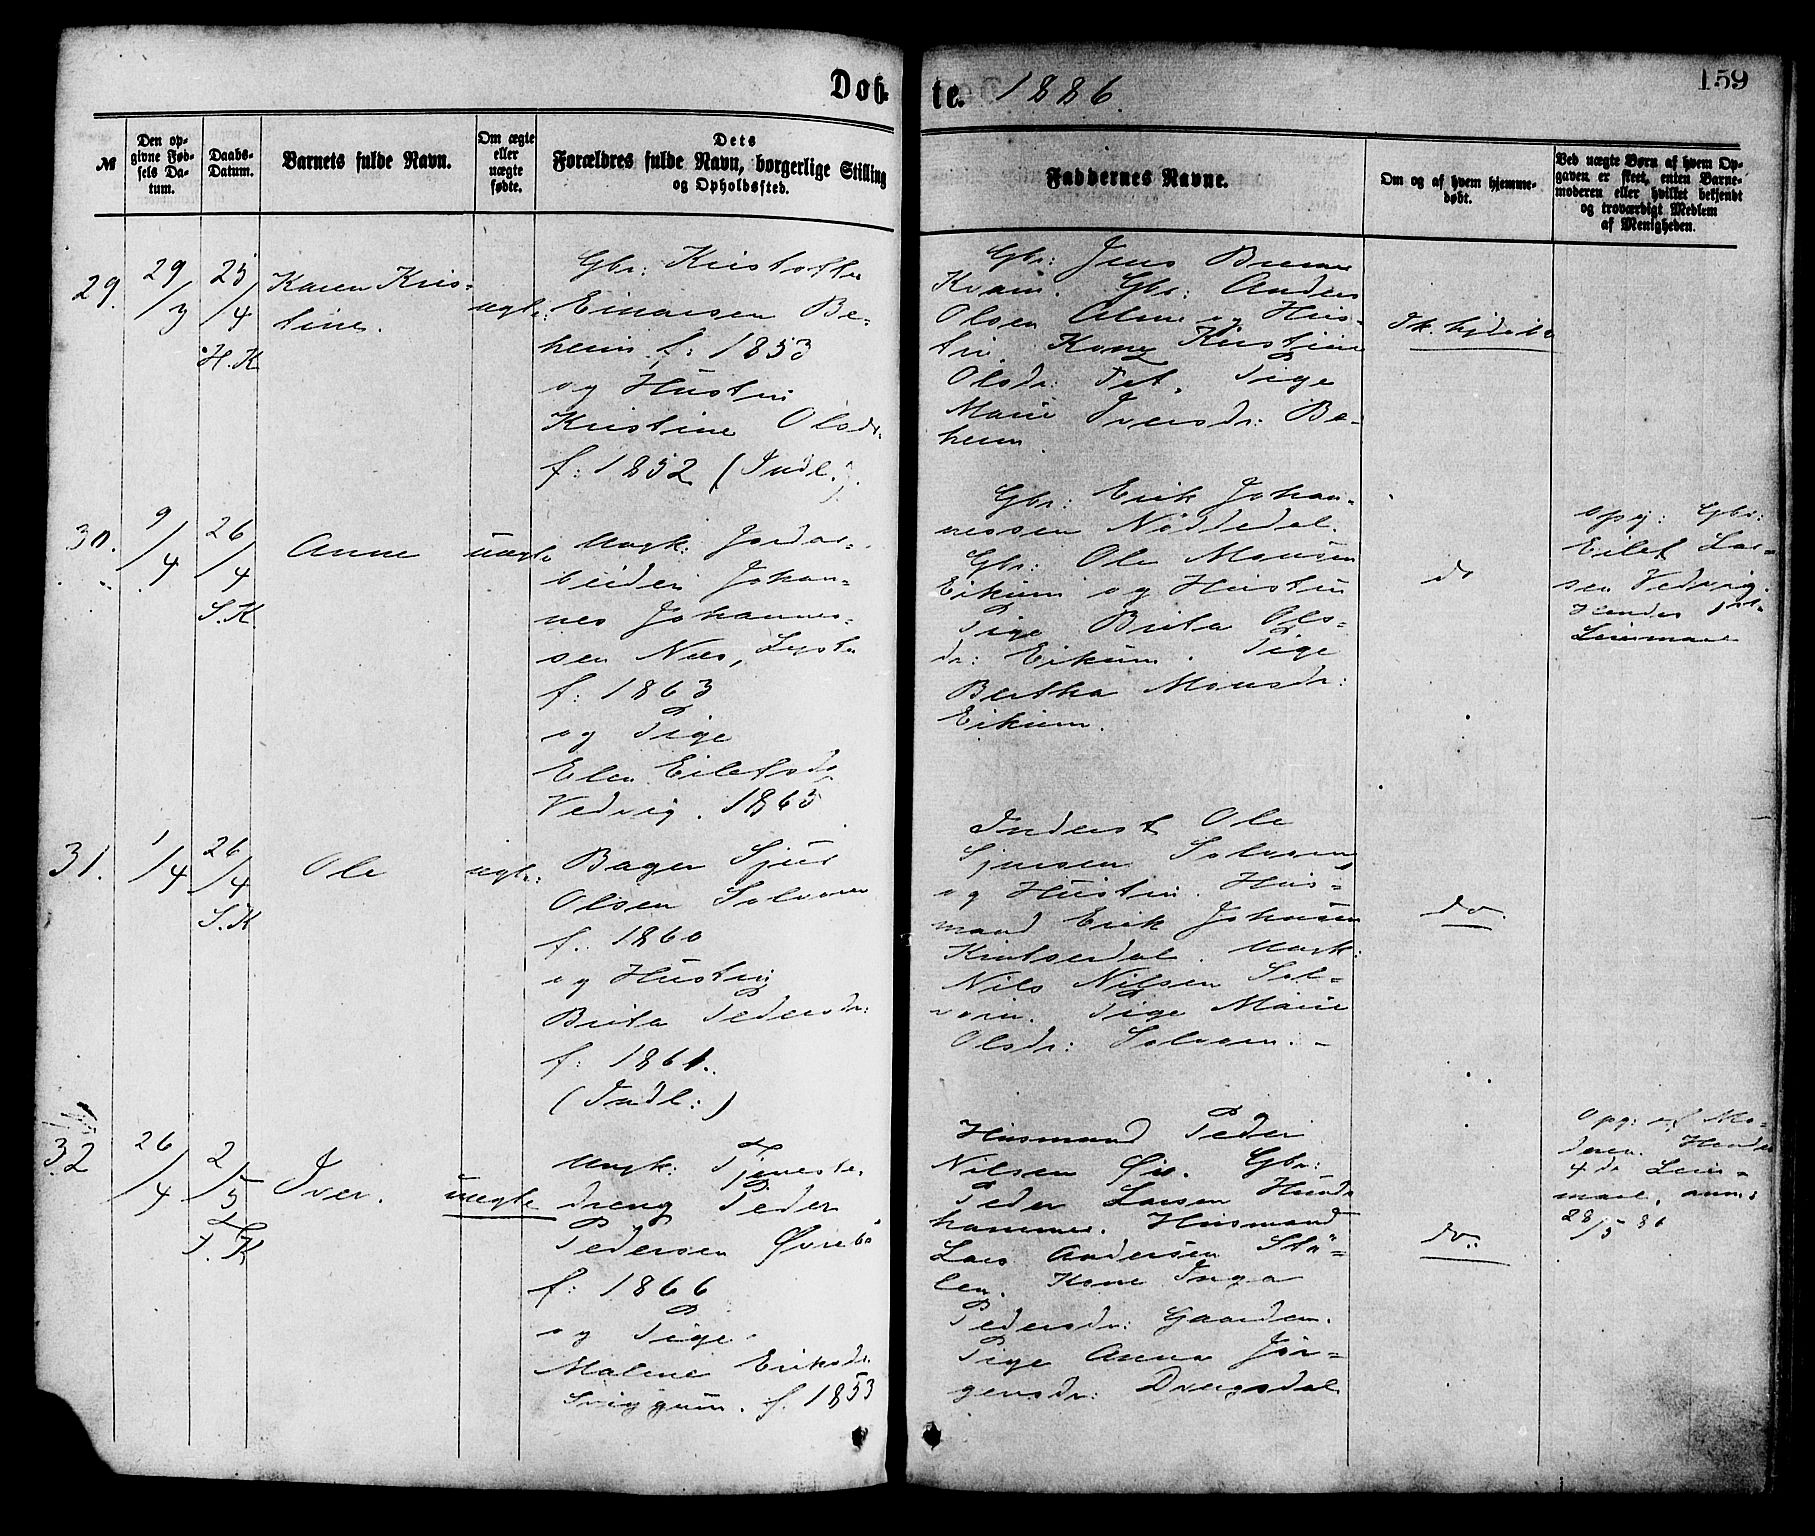 Døb-
te. 1886.
159
№
Den op-
givne Fød-
sels Da-
tum.
Daabs-
Datum.
Barnets fulde Navn.
Om ægte
eller
uægte
fødte.
Dets
Forældres fulde Navn, borgerlige Stilling
og Opholdssted.
Faddernes Navne.
Om og af hvem hjemme-
døbt.
Ved uægte Børn af hvem Op-
gaven er skeet, enten Barne-
moderen eller hvilket bekjendt
og troværdigt Medlem
af Menigheden.
29.
29/3
25/4
H. K
Karen Kris-
tine.
ægte:
Gbr: Kristoffer
Einarsen Be-
heim f: 1853
og Hustru
Kristine Olsdr.
f: 1852 (Indl.).
Gbr: Jens
Kvam. Gbr: Anders
Olsen Alme og Hus-
tru. Kone Kristine
Olsdr: Fet. Pige
Marie Iversdr: Be-
heim
Ik. hjdøbt
30.
9/4
26/4
S. K
Anne
uægte
Ungk: Jordar-
beider Johan-
nes Johannes-
sen Næs, Lyster
f: 1863
og Pige
Elen Eilefsdr
Vedvig. 1865
Gbr: Erik Johan-
nessen Nøddedal.
Gbr: Ole Monsen
Eikum og Hustru
Pige Brita Ols-
dr: Eikum. Pige
Bertha Monsdr:
Eikum.
do
opg: Gbr:
Eilef Lar-
sen Vedvig.
Hendes 1ste
Leiermaal
31.
1/4
26/4
S. K
Ole
ægte:
Bager Sjur
Olsen Solvorn
f. 1860
og Hustru
Brita Pedersdr:
f: 1861.
(Indl:)
Inderst Ole
Sjursen Solvorn
og Hustru. Hus-
mand Erik Johnsen
Kintserdal. Ungk:
Nils Nilsen Sol-
vorn. Pige Marie
Olsdr: Solvorn. -
do.
32
26/4
2/5
F. K
Iver.
uægte
Ungk: Tjeneste-
dreng Peder
Pedersen Øvrebø
f: 1866
og Pige
Malene Eriksdr.
Sviggum. f. 1853
Husmand Peder
Nilsen Øi. Gbr:
Peder Larsen Hunds
hammer. Husmand
Lars Andersen Stø-
len. Kone Inga
Pedersdr: Gaarden.
Pige Anna Jør-
gensdr: Drægsdal
do:
Opg: af Mo-
deren. Hendes
4de Leier-
maal, anm:
28/5 86